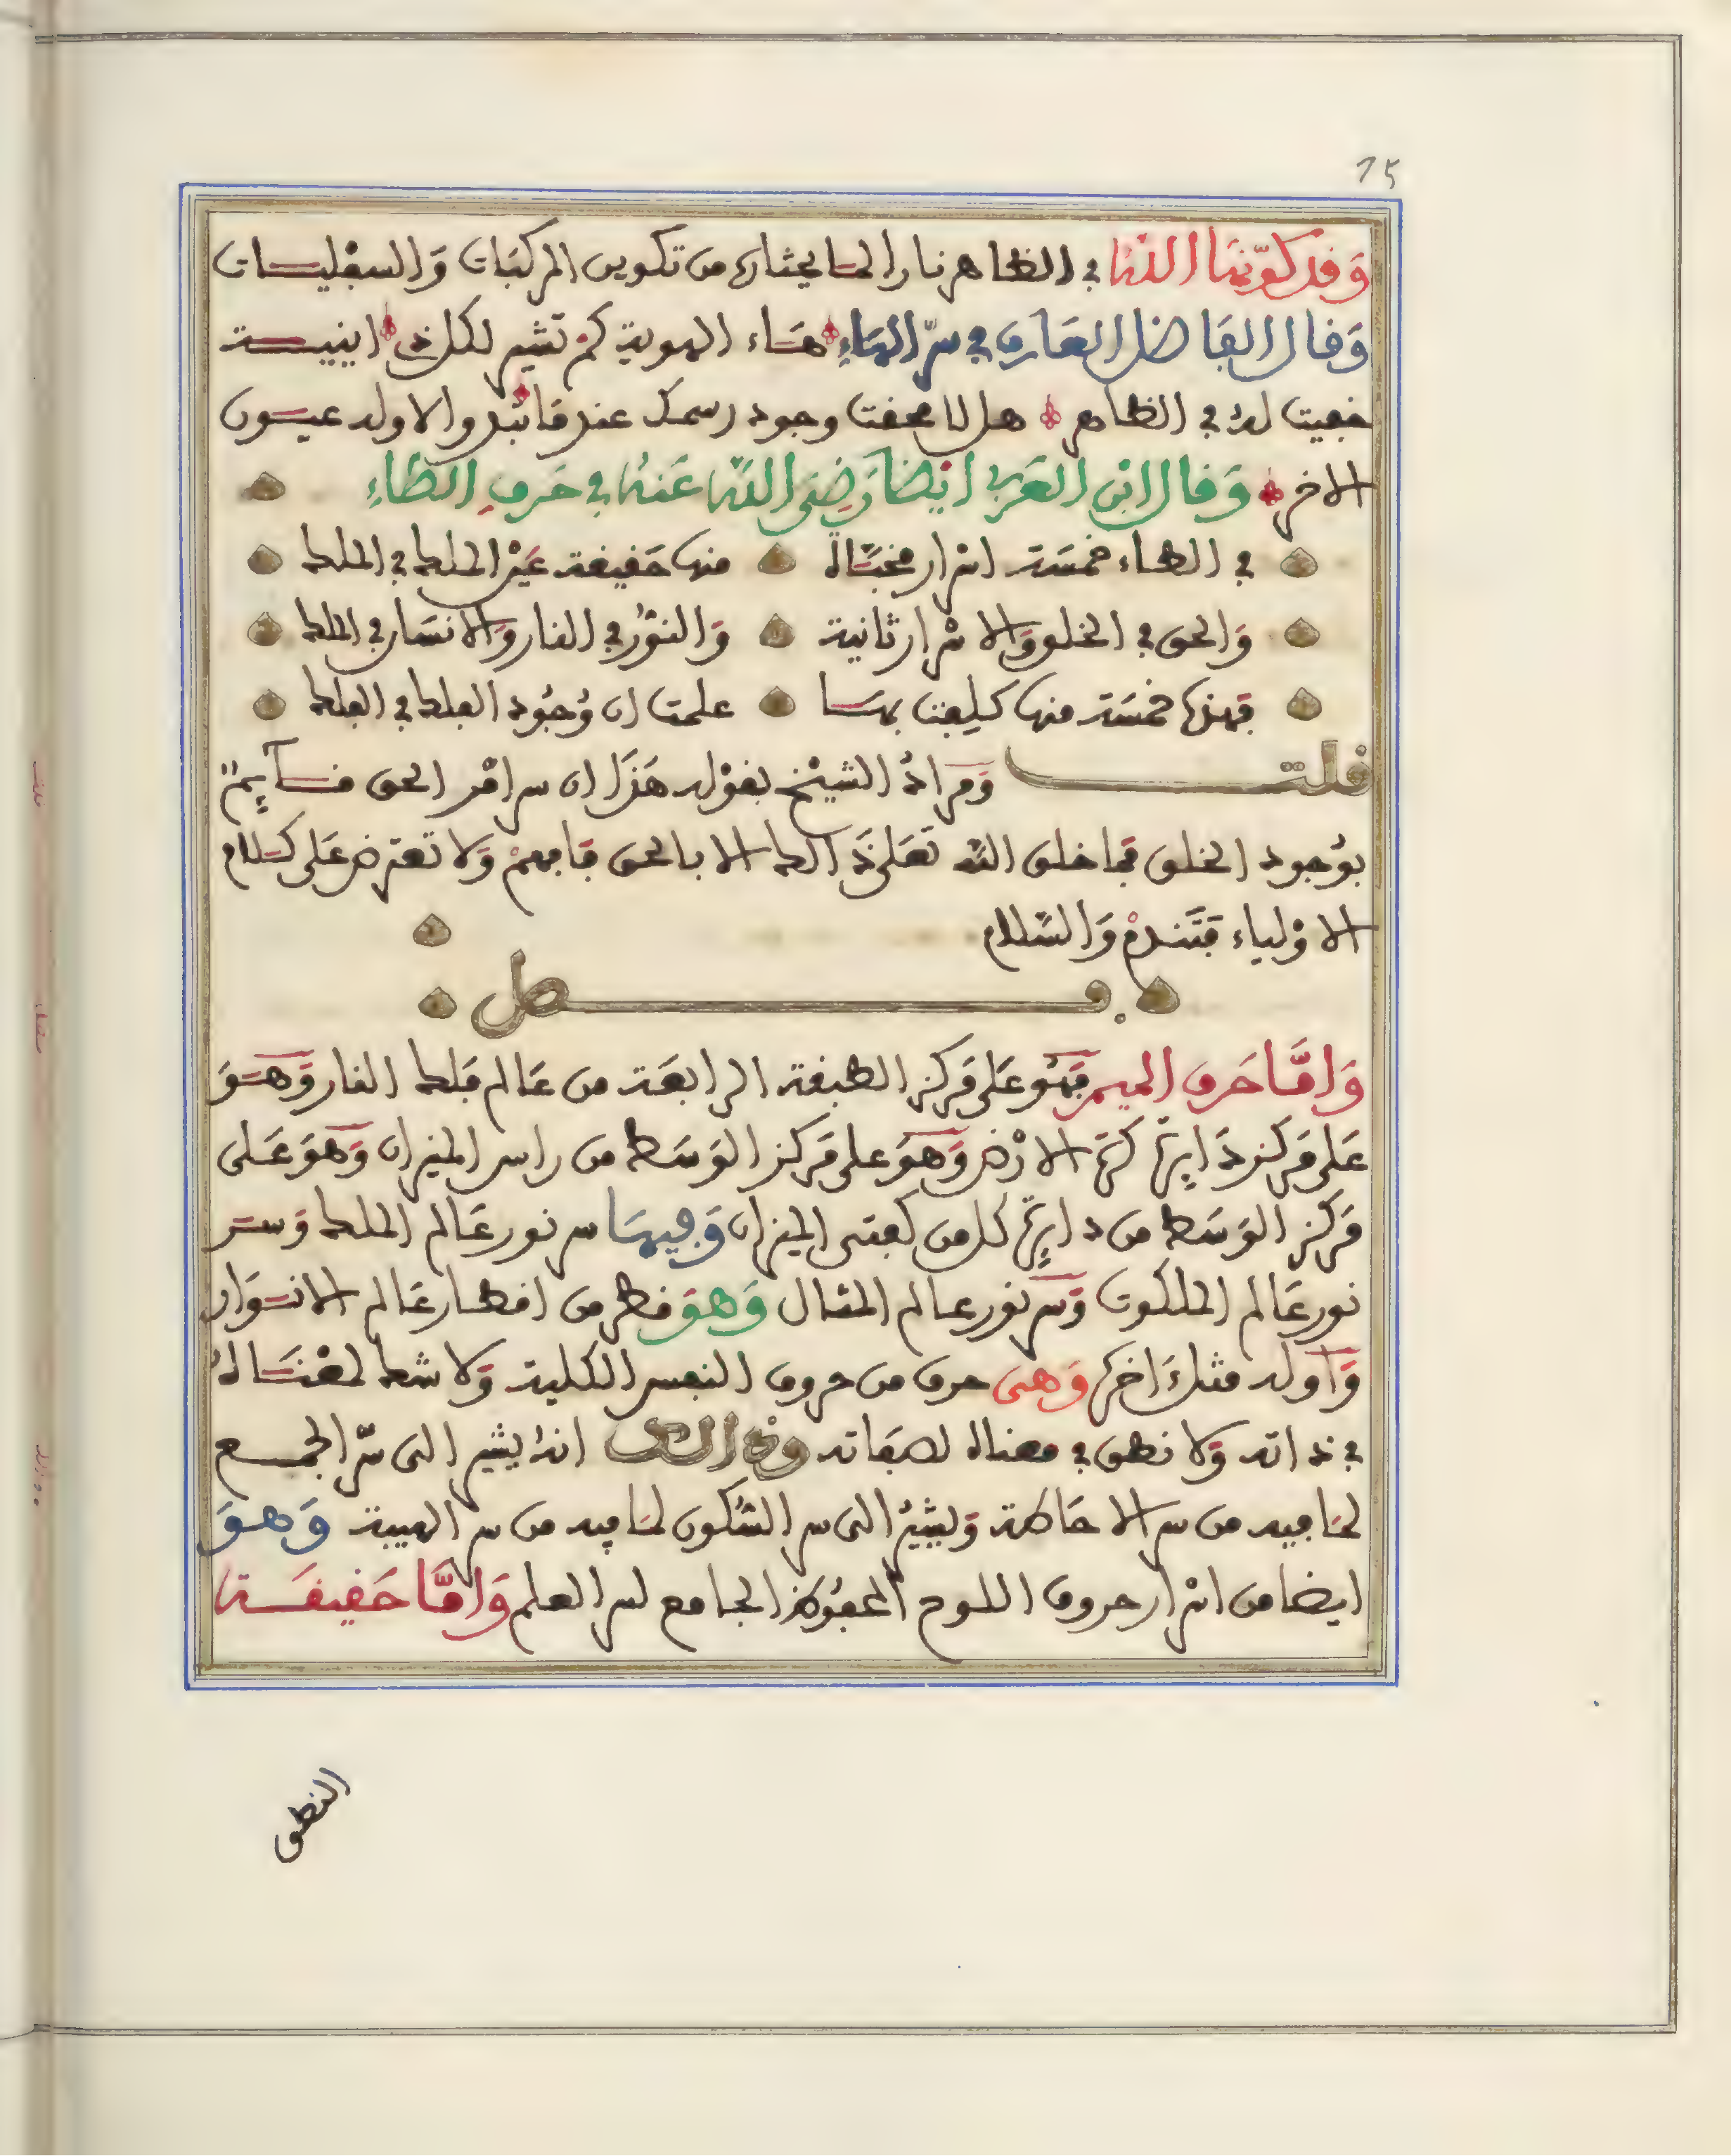 75
وَقد كوّنها الله في الظاهر نارا لما يحثاره من تكوين المركبات وَالسفليات
وَقال الفاضل العارف في سرّ الهاءِ هاء الهوية كم تشير لكل ذي اينية
خفيت له في الظاهر هل لا محقت وجود رسمك عند ما تبدو الاوله عيون
الاخر وَقال ابن العربي ايضا رَضِيَ الله عَنه في حَرفِ الظاءِ
في الطاء خمسَة اسْرار مخبَّاة منها حَقيقة عَيْن الملك في الملك
وَالحق في الخلق وَالاسْرار ثانية وَالنوْر في النار وَالانسَان في الملك
فهذه خمسَة منها كلِفت بها علمت ان وُجُود الفلك في الفلك
قلت وَمرادُ الشيْخ بقوْله هَذَا ان سر امْر الحق قآيمٌ
بوُجود الخلق فما خلق الله تعَلى ذَالك الا بالحق فافهمْ وَلا تعترض عَلى كلام
الاوْلياء فتَندمْ وَالسَّلام
فصل
وَامَّا حَرف الميم فهُوَ عَلى مَركز الطبقة الرابعَة من عَالم فلك النار وَهوَ
عَلى مَركز دَايرة كرة الارْض وَهوَ على مَركز الوَسَط من راس الميزان وَهوَ عَلى
مَركز الوَسَط من دايرة كل من كفتي الميزان وَفيهَا سر نور عَالم الملك وَسر
نور عَالم الملكوت وَسر نور عالم المثال وَهوَ قطر من اقطار عَالم الانوَار
وَاوله مثل اخره وَهى حرف من حروف النفس الكلية وَلا شك لمعْنَاهُ
في ذاته وَلا نطق في معناه لصفاته وذالك انه يشير الى سرّ الجمع
لما فيه من سر الاحَاطة وَيشيْرُ الى سر السُّكون لما فيه من سر الهيبة وَهوَ
ايضا من اسْرار حروف اللوح المحفوُظ الجامع لسر العلم وَامَّا حَقيقَة
النطق